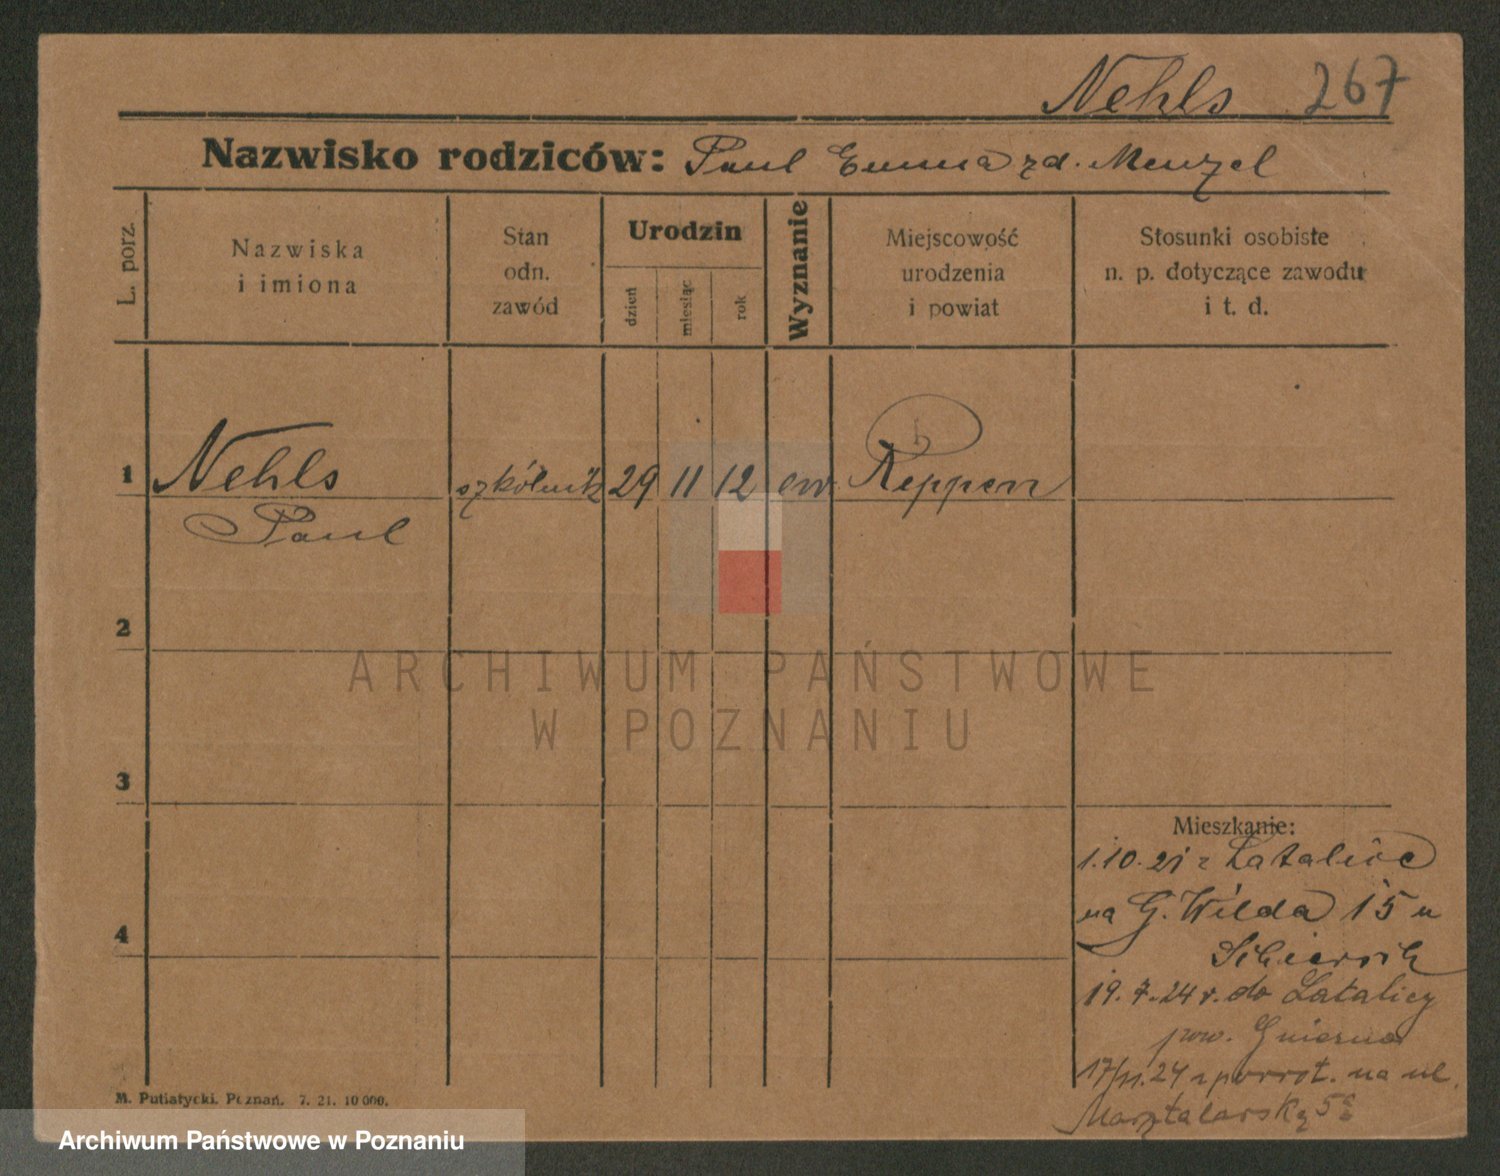 Nehls 267
Nazwisko rodziców: Paul Emma zd. Menzel
L. porz.
Nazwiska
i imiona
Stan
odn.
zawód
Urodzin
dzień
miesiąc
rok
Wyznanie
Miejscowość
urodzenia
i powiat
Stosunki osobiste
n. p. dotyczące zawodu
i t. d.
1 Nehls szkólnik 29 11 12 ew Reppen
Paul
2
3
4
ARCHIWUM PAŃSTWOWE
W POZNANIU
Mieszkanie:
1.10.21 z Latalice
na G. Wilda 15 u
19.7.24 r. do Latalicy
pow. Gniezno
17/11.24 z powrot. na ul.
Masztalarską 5a
M. Putiatycki. Poznań. 7. 21. 10 000.
Archiwum Państwowe w Poznaniu